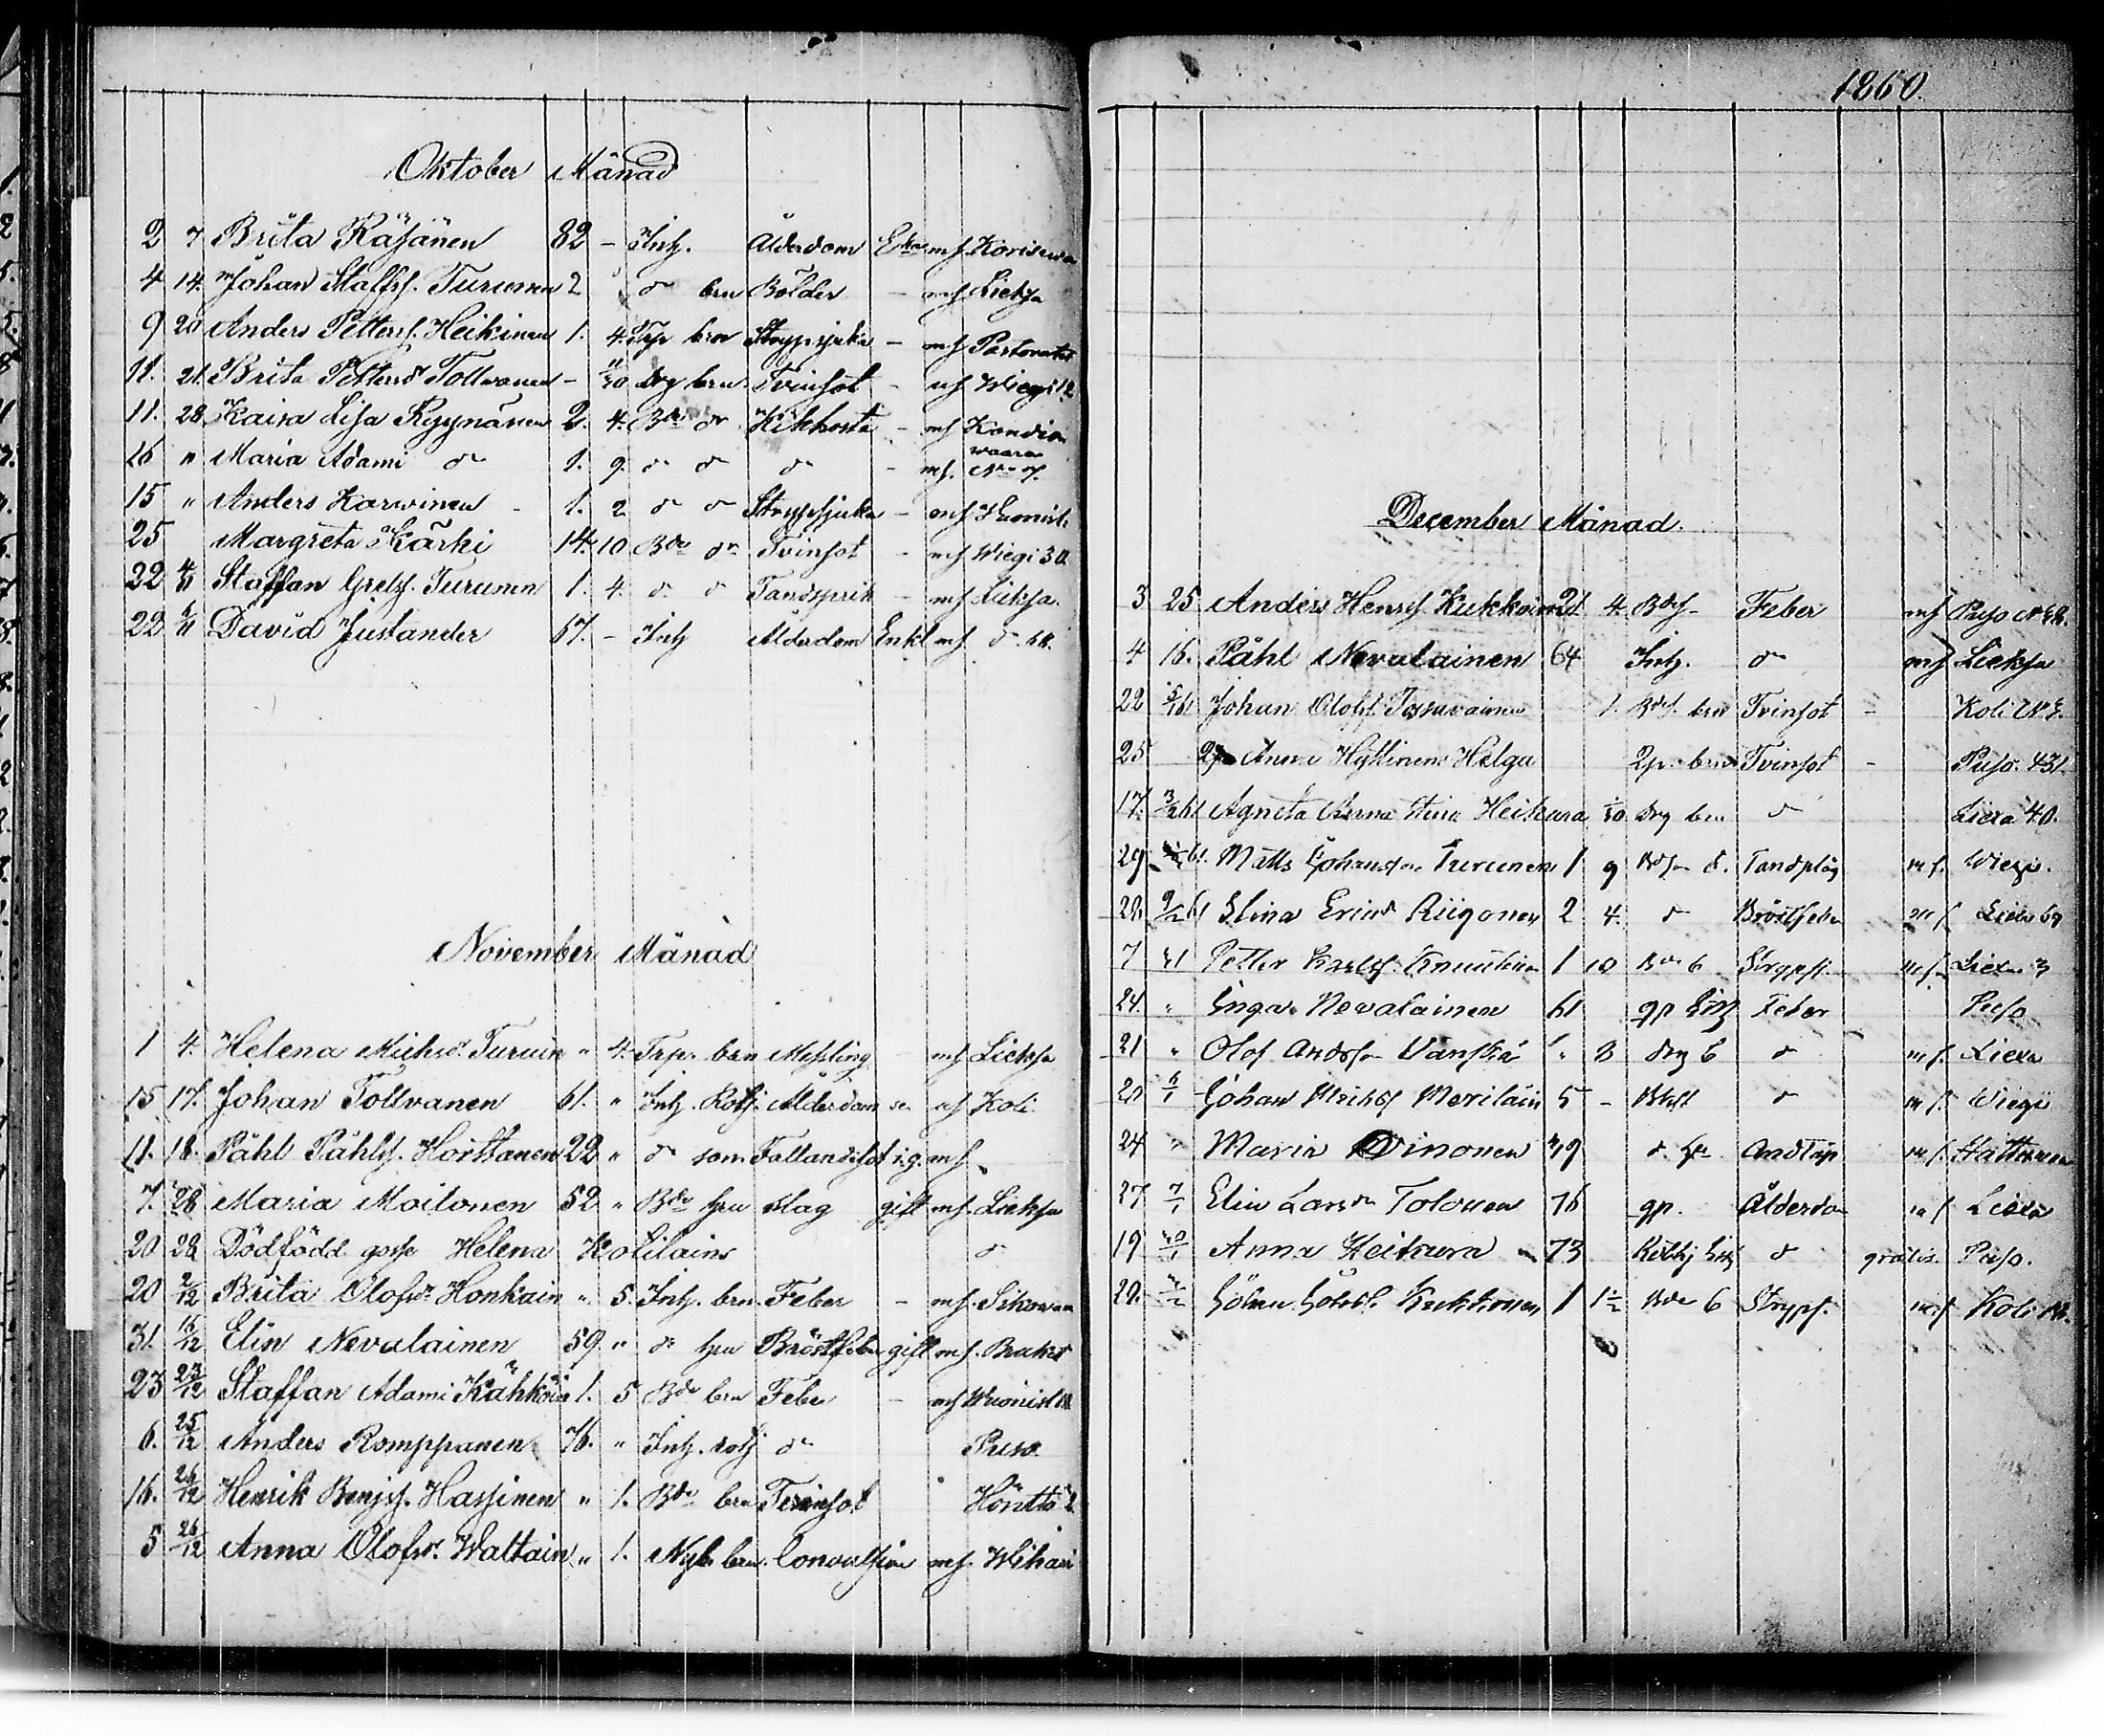 1860.
Oktober Månad
2 7 Brita Räsänen 82 – Inh. Ålderdom Eka mf Korisewa
4 14. Johan Staffs. Turunen 2 dr brn Bölder – mf Lieksa
9 20 Anders Petters. Heikinen 1. 4. Trp brn Strypsjuka – mf Pastoratet
11. 21. Brita Pettersdr Tollwanen – 11/30 Drg brn Tvinsot – mf Wiegi 12
11. 28 Kaisa Lisa Ryynänen 2. 4. Bdr dr Kikhosta – mf Kondio
waara
26 " Maria Adami dr 1. 9. dr dr dr – mf. No 7.
15 " Anders Karwinen – 1. 2 dr dr Strypsjuka – mf Wuonisl.
25 Margreta Kärki 14. 10 Bdr dr Tvinsot – mf Wiegi 30
22 4/11 Staffan Gretas. Turunen 1. 4. dr dr Tandsprik – mf Lieksa.
22 4/11 David Justander 67. – Inh Ålderdom Enkl mf dr
November Månad
1 4. Helena Michsdr. Turuin " 4. Trp. brn Messling mf Lieksa
15 17. Johan Tollvanen 61. " Inh. Rothj. Ålderdom mf Koli
11. 18. Påhl Påhls. Horttanen 22 " dr son Fallandesot i.g. mf
7. 28 Maria Moilonen 52 " Bdr hru Slag gift mf. Lieksa
20 28 Dödfödd gosse Helena Kolilains dr
20 2/12 Brita Olofsdr Honkain " 5. Inh. brn. Feber – mf. Sikowaa
31. 16/12 Elin Nevalainen 59. " dr hru Bröstfeber gift mf.
23 23/12 Staffan Adami Kähköin 1. 5 Bdr brn Feber – mf Wuonisl
6. 25/12 Anders Romppanen 76. " Inh. rothj dr Puso.
16. 26/12 Henrik Benjs. Hassinen " 1. Bdr brn Tvinsot Höntto 2
5 26/12 Anna Olofsdr. Wattain " 1. Nyb. brn. Convulsion mf. Wihari
December Månad.
3 25 Anders Henrs. Kukkoin 21 4. Bdrs – Feber mf Puso
4 16. Påhl Nevalainen 64 Inh. dr mf Lieksa
22 Johan Olofs. Tossavainen 1. Bdrs. brn Tvinsot – Koli
25 Anna Hyttinens Helga 2p. brn Tvinsot – Puso. 431.
17. 3/2 61 Agneta Anna Stina Heikura 1/30 Drg brn dr Liexa 40.
29 61. Matts Johansson Turunen 1 9 Tandplåg mf. Wiegi.
28. 9/2 61 Stina Ericsdr Riigonen 2 4. dr Bröstfeber mf Liexa 69
7 31 Petter Karls. Knuutinen 1 10 Bdr b Strypsj. mf. Liexa 3
24. " Inga Nevalainen 61 gp Feber Puso
21 " Olof Andsson Vänskä " 3 drg b dr mf. Liexa
20 6/1 Johan Merilain 5 – dr mf. Wiegi
24 " Maria Oinonen 49 dr mf. Hattuwaara
27 7/1 Elin Larsdr Tolonen 76 gp. Ålderdom mf Liexa
19 20/1 Anna Heikura 73 Rothj dr gratis. Puso.
29. Johan Johds. Kukkonen 1 1 1/2 Bdr b Strypsj. mf Koli